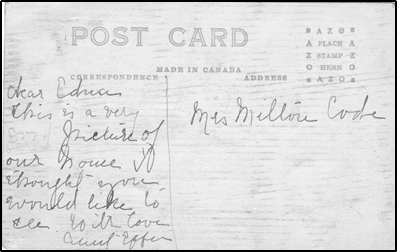 POST CARD
MADE IN CANADA
CORRESPONDENCE
ADDRESS
AZO
A PLACE A
Z STAMP Z
O HERE O
AZO
Dear Edna
This is a very
picture of
our home I
thought you
would like to
see With love
Aunt Effie
Mrs Milton Code